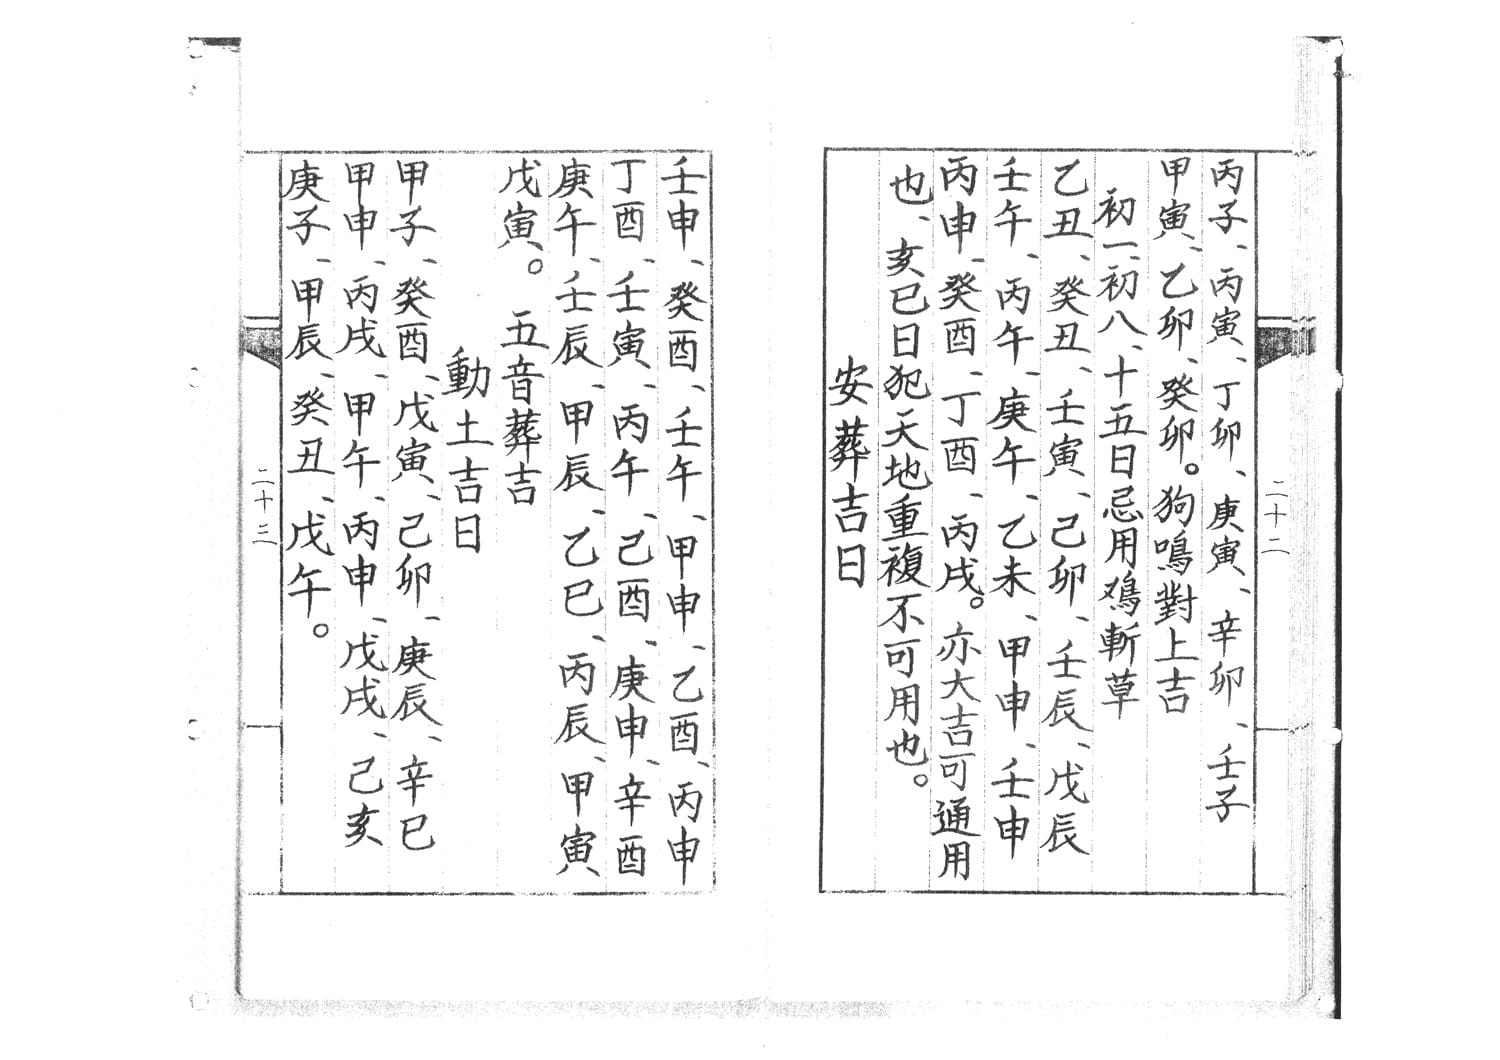 丙子、丙寅、丁卯、庚寅、辛卯、壬子
甲寅、乙卯、癸卯。狗鳴對上吉
初一、初八、十五日忌用鴉斬草
乙丑、癸丑、壬寅、己卯、壬辰、戊辰
壬午、丙午、庚午、乙未、甲申、壬申
丙申、癸酉、丁酉、丙戌。亦大吉可通用
也、亥巳日犯天地重複不可用也。
安葬吉日
二十二
壬申、癸酉、壬午、甲申、乙酉、丙申
丁酉、壬寅、丙午、己酉、庚申、辛酉
庚午、壬辰、甲辰、乙巳、丙辰、甲寅
戊寅、。五音葬吉
動土吉日
甲子、癸酉、戊寅、己卯、庚辰、辛巳
甲申、丙戌、甲午、丙申、戊戌、己亥
庚子、甲辰、癸丑、戊午。
二十三